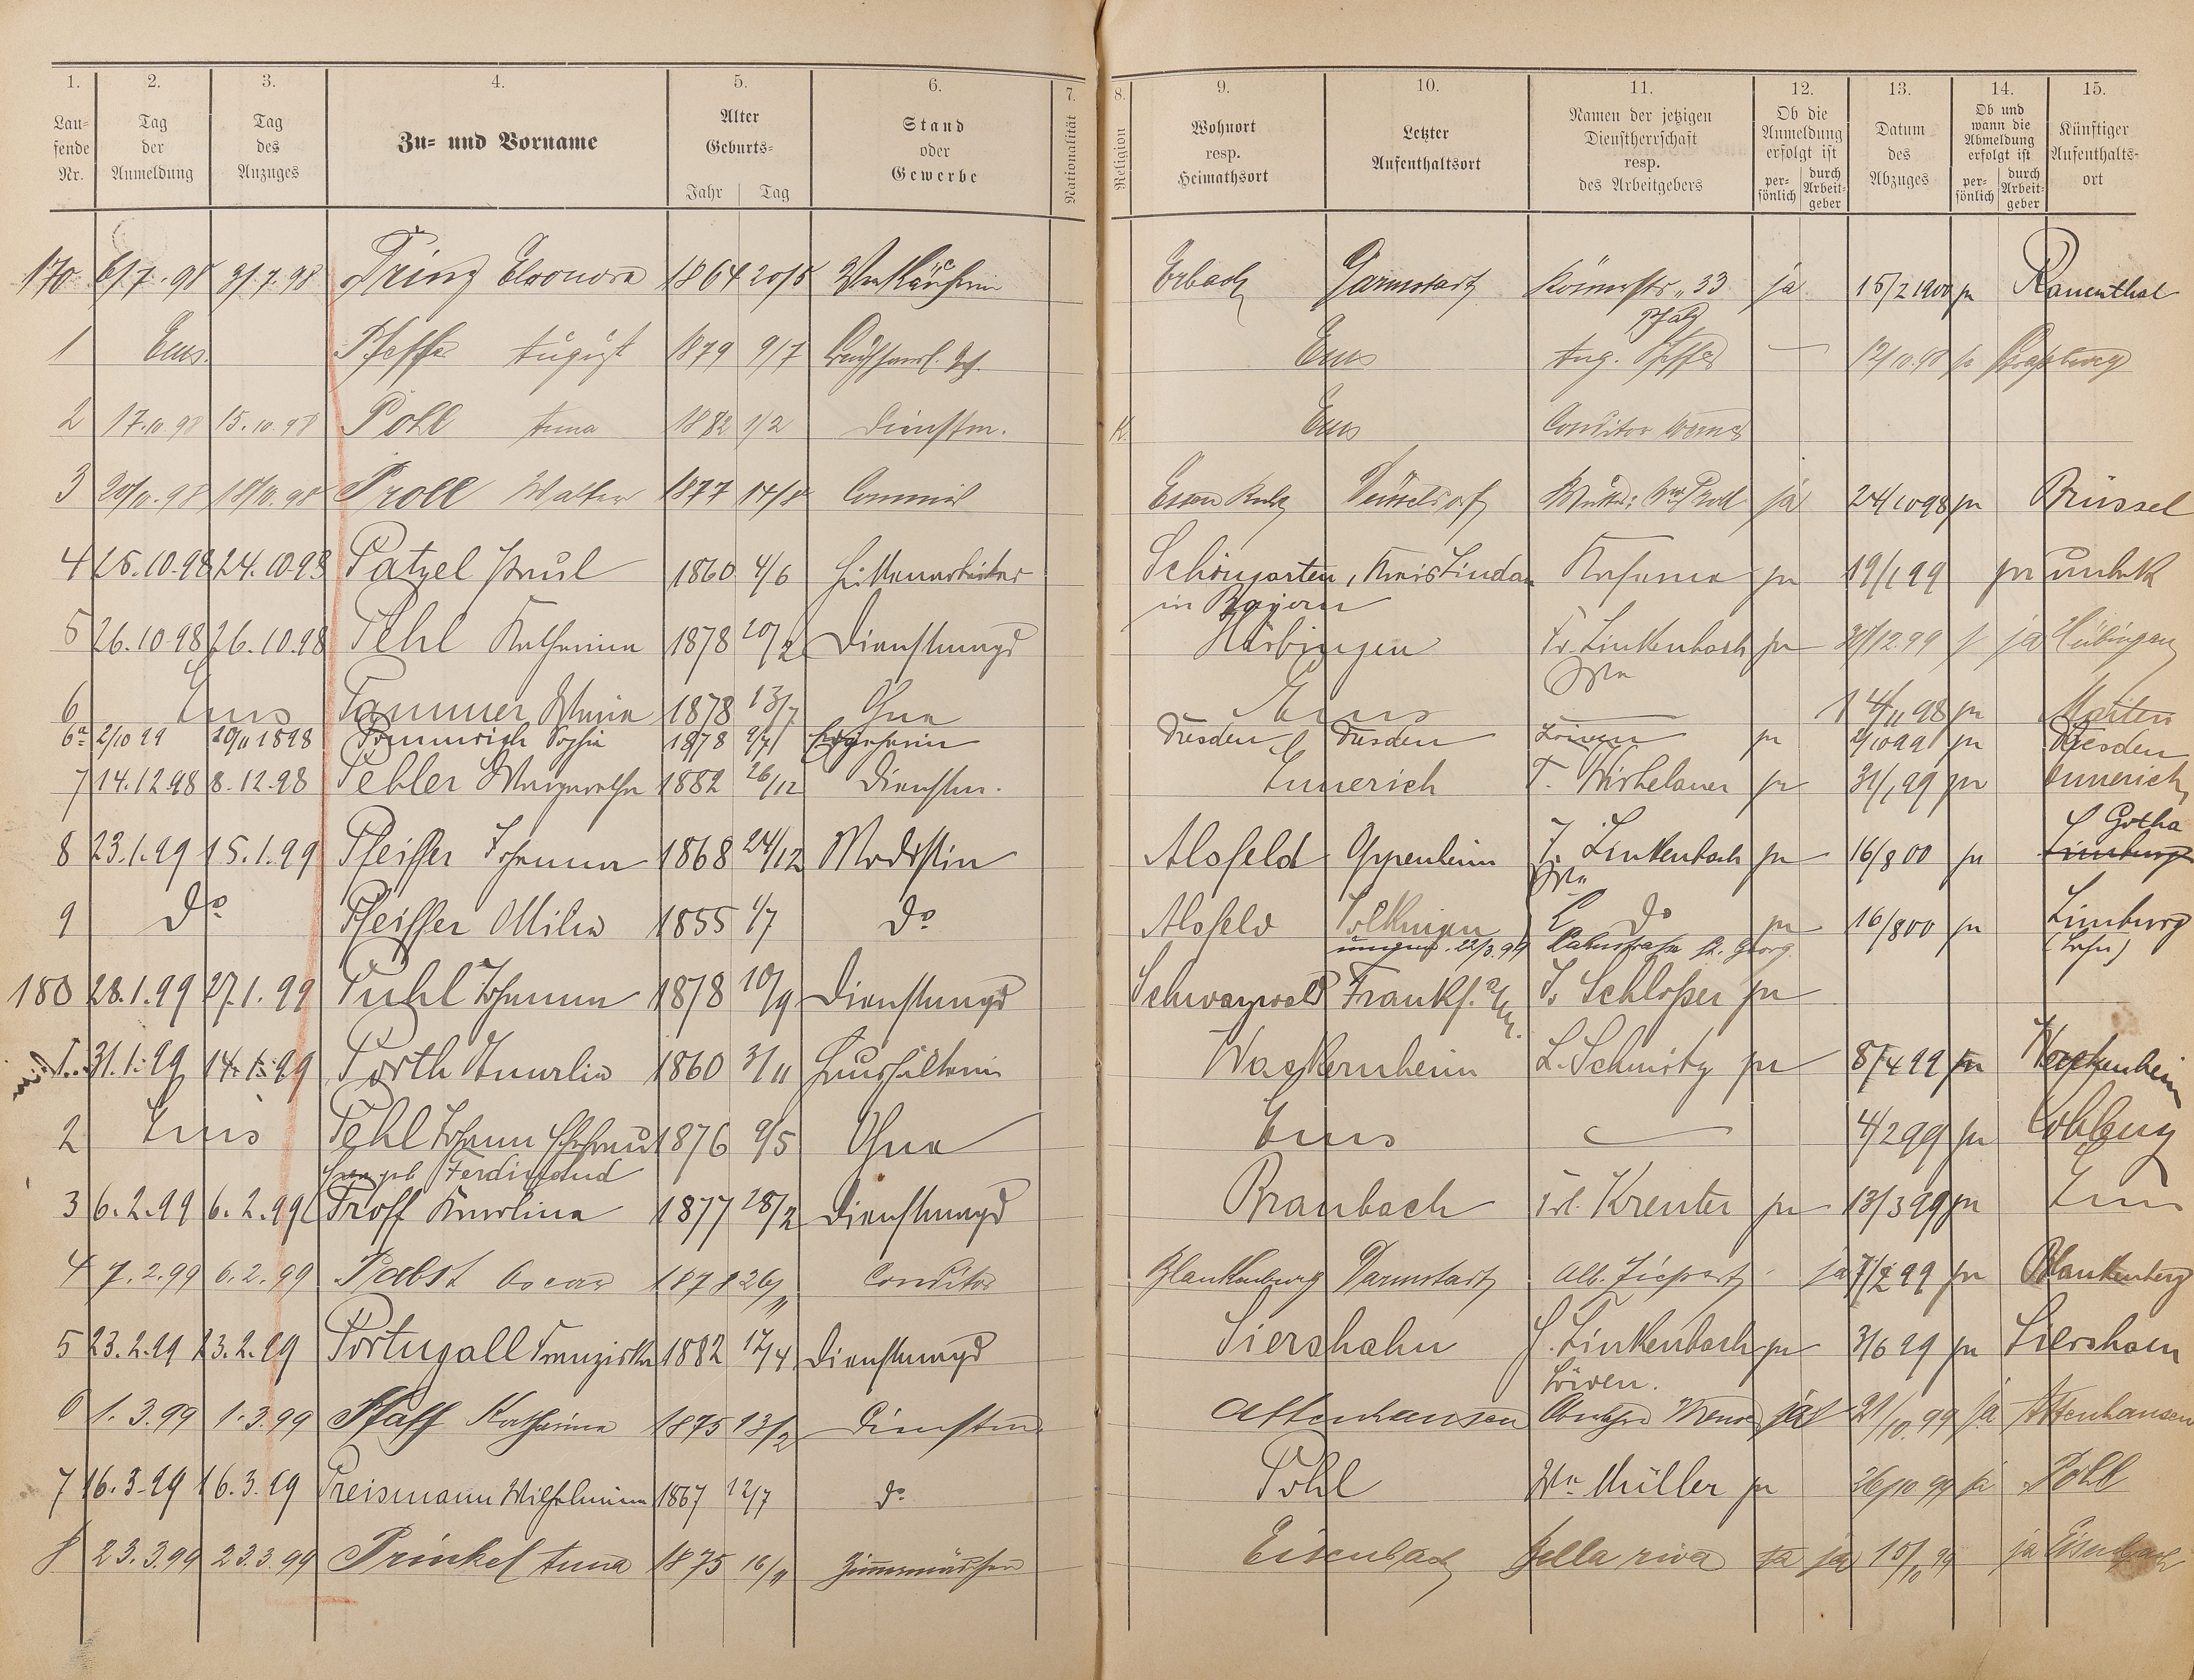 1. 2. 3. 4. 5. 6. 7. 8. 9. 10. 11. 12. 13. 14. 15.
Lau-
fende
Nr.
Tag
der
Anmeldung
Tag
des
Anzuges
Zu- und Vorname
Alter
Geburts-
Jahr | Tag
Stand
oder
Gewerbe
Nationalität
Religion
Wohnort
resp.
Heimathsort
Letzter
Aufenthaltsort
Namen der jetzigen
Dienstherrschaft
resp.
des Arbeitgebers
Ob die
Anmeldung
erfolgt ist
per-
sönlich
durch
Arbeit-
geber
Datum
des
Abzuges
Ob und
wann die
Abmeldung
erfolgt ist
per-
sönlich
durch
Arbeit-
geber
Künftiger
Aufenthalts-
ort
170. 6/7.98 3/7.98 Prinz Eleonore 1864 20/5 Verkäuferin Erbach Darmstadt Römerstr. 33 ja 15/2 1900 ja Rauenthal
1 Ems. Pfeffer August 1879 9/7 Ems Aug. Pfeffer — 12/10.98 ja
2 17.10.98 15.10.98 Pohl Anna 1882 1/2 Dienstm. K. Ems Conditor Werner
3 20/10.98 18/10.98 Proll Walter 1877 14/8 Commis Essen Ruhr Düsseldorf ja 24/10 98 ja Brüssel
4 25.10.98 24.10.98 Patzel Paul 1860 4/6 Hüttenarbeiter Schöngarten, Kreis Lindau Kaserne ja 19/1 99 ja unbek
in Bayern
5 26.10.98 26.10.98 Pehl Katharina 1878 20/2 Dienstmagd Hübingen Fr. Linkenbach ja 12.99 ja Hübingen
Wwe
6 Ems Pammer Maria 1878 13/7 Ohne Ems — 14/11 98 ja Marten
6a 2/10 99 1898 Sophie 1878 9/7 Dresden Dresden Löwen ja 2/10 99 ja Dresden
7 14.12.98 8.12.98 Pebler Margaretha 1882 26/12 Dienstm. Ennerich ja 31/1 99 ja Ennerich
8 23.1.99 15.1.99 Pfeiffer Johanna 1868 24/12 Modistin Alsfeld Oppenheim J. Linkenbach ja 16/8 00 ja Gotha
Wwe Limburg
9 do Pfeiffer Milia 1855 1/7 do Alsfeld do ja 16/8 00 ja Limburg
22/3.99 St. Georg (Lahn)
180 28.1.99 27.1.99 Puhl Johanna 1878 10/9 Dienstmagd Schwarzwald Frankf. a/M. J. Schloßer ja
1. 31.1.99 14.1.99 Porth Amalie 1860 3/11 Haushälterin Wackernheim L. Schmitz ja 8/4 99 ja Wackernheim
2 Ems Pehl Johann Ehefrau 1876 9/5 Ohne Ems — 4/2 99 ja Coblenz
geb. Ferdinand
3 6.2.99 6.2.99 Proff Karolina 1877 28/2 Dienstmagd Braubach Frl. Kreuter ja 13/3 99 ja Ems
4 7.2.99 6.2.99 Pabst Oscar 1878 26/11 Conditor Blankenburg Darmstadt Alb. ja 7/2 99 ja Blankenberg
5 23.2.99 23.2.99 Portugall Franziska 1882 12/4 Dienstmagd Siershahn J. Linkenbach ja 3/6 99 ja Siershain
Löwen.
6 1.3.99 1.3.99 Pfaff Katharina 1875 13/2 Dienstm. Attenhausen ja 21/10.99 ja Attenhausen
7 16.3.99 16.3.99 Preismann Wilhelmina 1867 12/7 do Pohl Wwe Müller ja 26/10 99 ja Pohl
8 23.3.99 23.3.99 Prinkel Anna 1875 16/11 Zimmermädchen Eisenbach Bella riva ja ja 10/10 99 ja Eisenbach